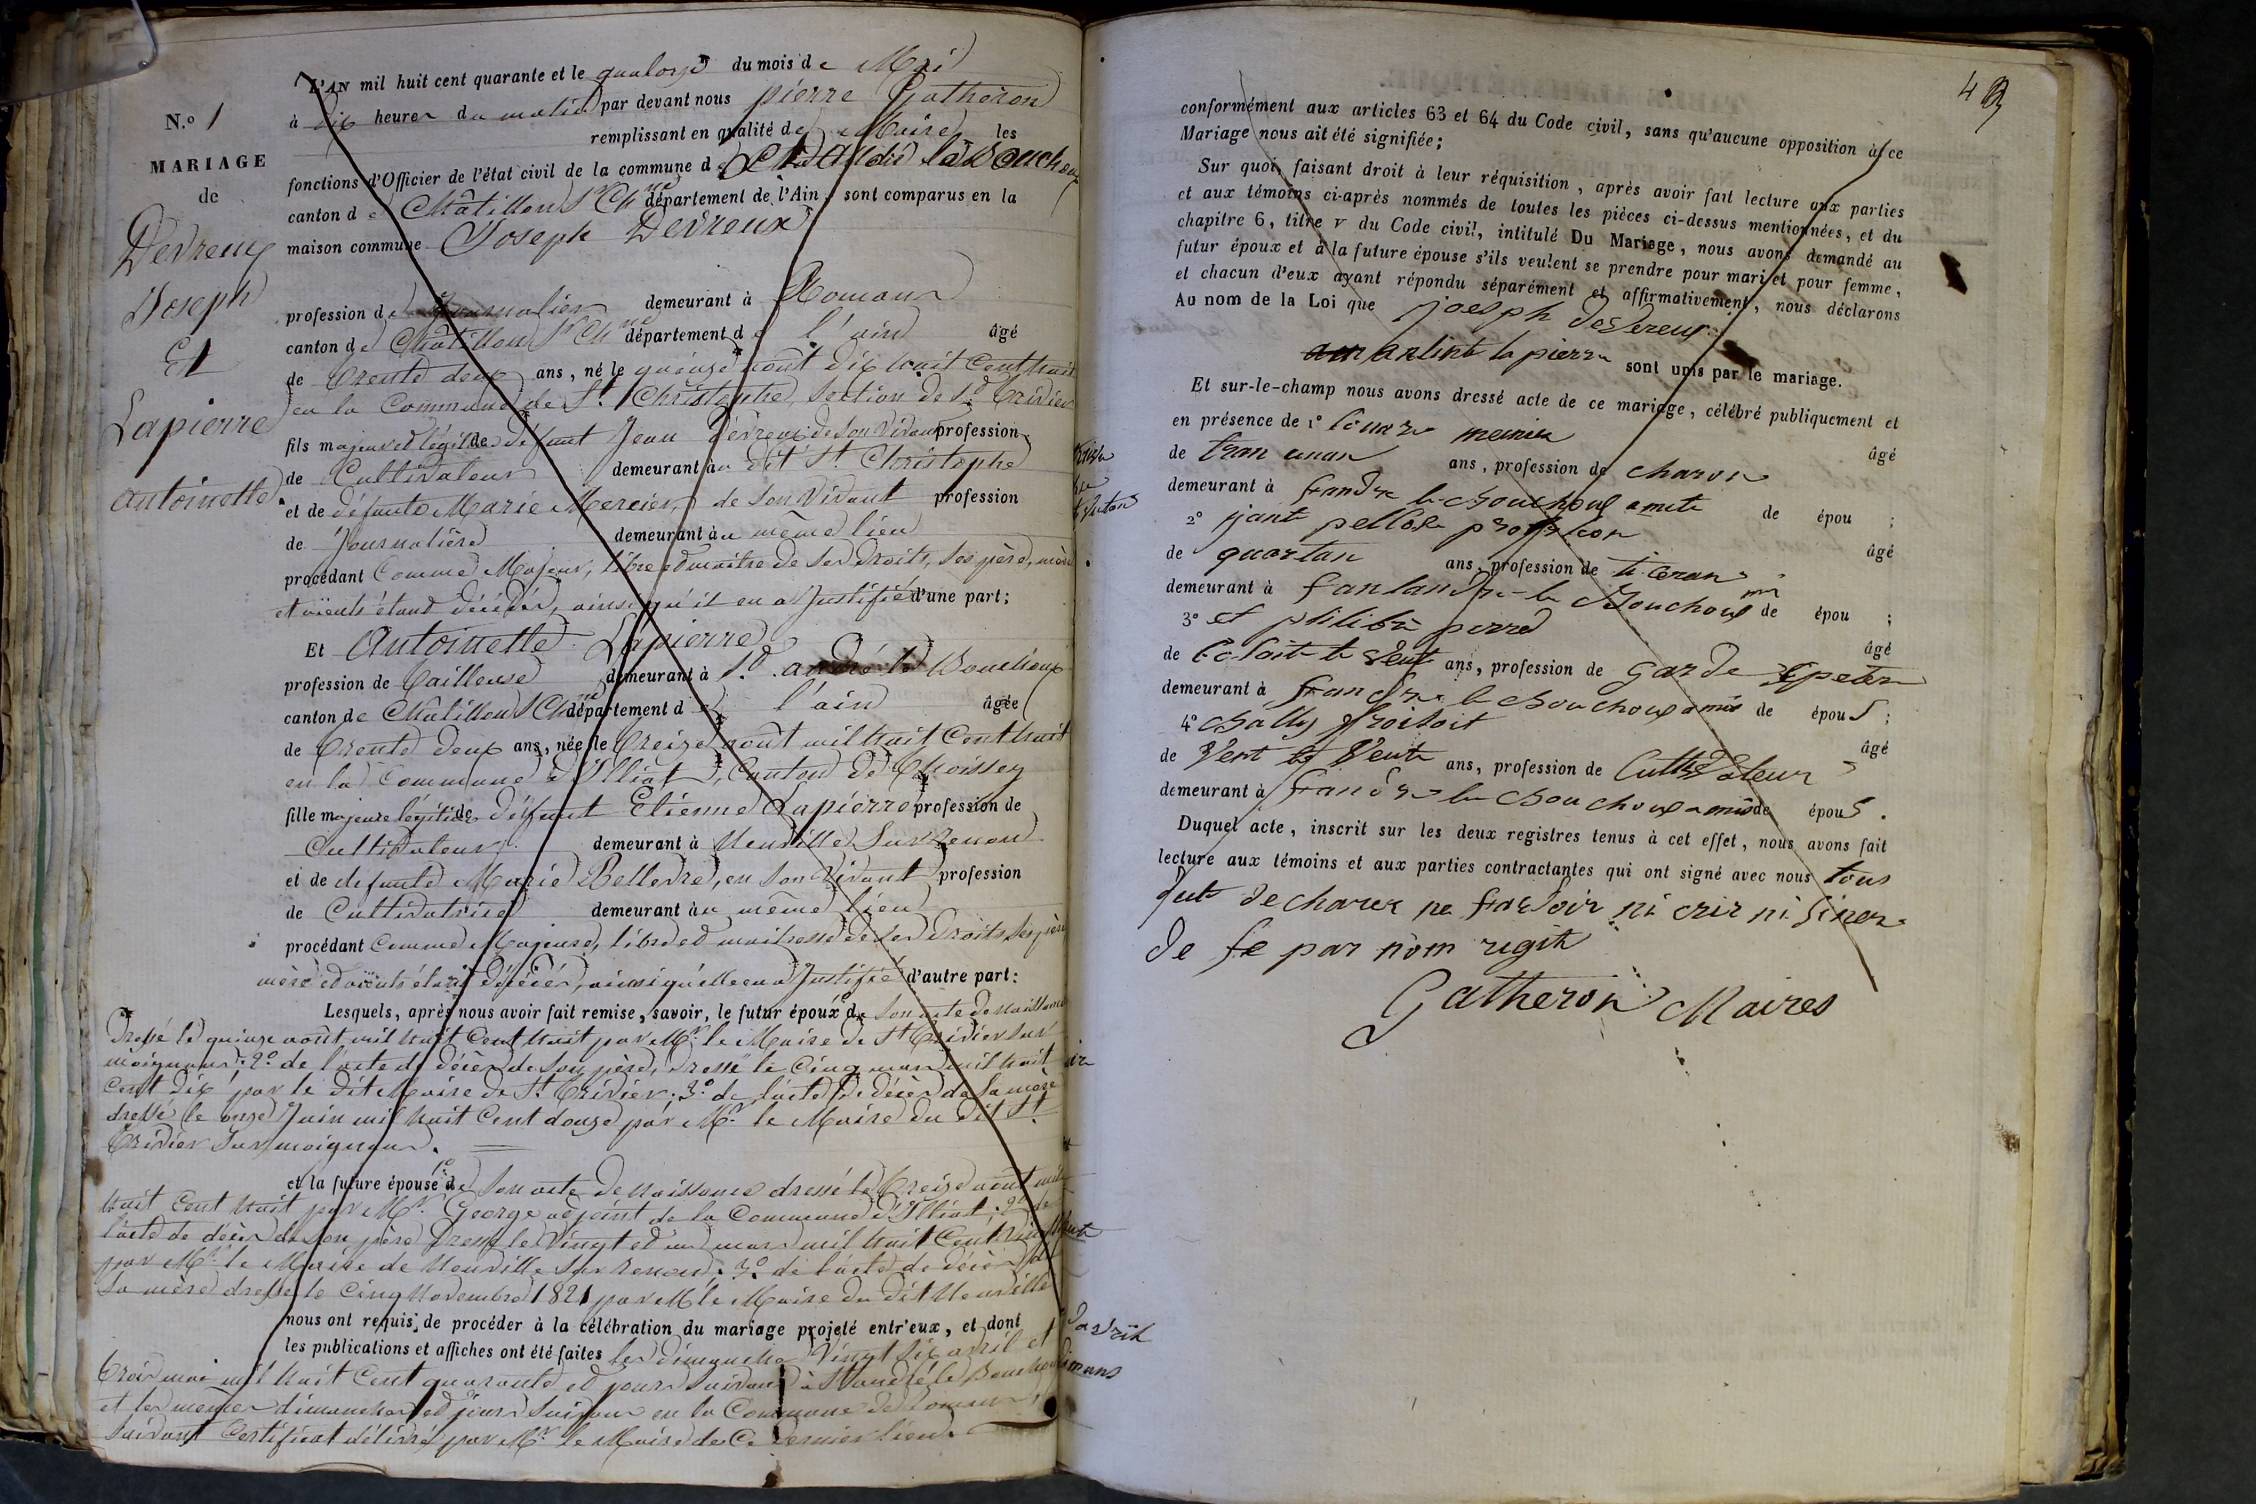 N.º 1
MARIAGE
de
Devreux
Joseph
Et
Lapierre
antoinette
L'AN mil huit cent quarante et le quatorze du mois de Mai
à dix heures du matin par devant nous pierre Gatheron
remplissant en qualité de Maire les
fonctions d'Officier de l'état civil de la commune de St André le Bouchoux
canton de Châtillon s Ch.ne département de l'Ain, sont comparus en la
maison commune Joseph Devreux
profession de Journalier demeurant à Romans
canton de Châtillon sr Ch.ne département de l'ain âgé
de trente deux ans, né le quinze août dix huit cent huit
en la Commune de St Christophe, section de St Trivier
fils majeur et légitime de défunt Jean Devreux de son vivant profession
de Cultivateur demeurant au dit St. Christophe
et de défunte Marie Mercier, de son vivant profession
de Journalière demeurant au même lieu
procédant Comme Majeur, libre et maître de ses droits, ses père, mère
et aïeuls étant décédés, ainsi qu'il en a Justifié d'une part;
Et Antoinette Lapierre
profession de tailleuse demeurant à St. andré le Bouchoux
canton de Châtillon s Ch.ne département de l'ain âgée
de trente deux ans, née le treize août mil huit cent huit
en la Commune d'Illiat, Canton de Thoissey
fille majeure légitime de défunt Etienne Lapierre profession de
Cultivateur demeurant à Neuville sur Renon
et de defunte Marie Bellevre, en son vivant profession
de Cultivatrice demeurant au même lieu
procédant Comme Majeure, libre et maitresse de ses droits, ses père
mère et aïeuls étant décédés, ainsi qu'elle en a Justifié d'autre part:
Lesquels, après nous avoir fait remise, savoir, le futur époux 1º de son acte de naissance
dressé le quinze août mil huit cent huit par Mr. le Maire de St Trivier sur
moignans; 2º de l'acte de décès de son père, dressé le cinq mars mil huit
cent dix par le dit Maire de St. Trivier; 3º de l'acte de décès de sa mère
dressé le onze Juin mil huit cent douze par Mr. le Maire du dit St.
Trivier sur moignans.
et la future épouse 1º de son acte de naissance dressé le treize août mil
huit cent huit par Mr. George adjoint de la Commune d'Illiat; 2º de
l'acte de décès de son père dressé le vingt et un mars mil huit cent
par Mr. le Maire de Neuville sur Renon; 3º de l'acte de décès de
sa mère dressé le cinq Novembre 1821 par M. le Maire du dit Neuville
nous ont requis de procéder à la célébration du mariage projeté entr'eux, et dont
les publications et affiches ont été faites les dimanches vingt six avril et
trois mai mil huit cent quarante et jours suivans à St andré le Bouchoux
et les mêmes dimanches et jours suivans en la Commune de Romans,
suivant Certificat délivré par Mr. le Maire de Ce dernier lieu.
4
conformément aux articles 63 et 64 du Code civil, sans qu'aucune opposition à ce
Mariage nous ait été signifiée;
Sur quoi, faisant droit à leur réquisition, après avoir fait lecture aux parties
et aux témoins ci-après nommés de toutes les pièces ci-dessus mentionnées, et du
chapitre 6, titre v du Code civil, intitulé Du Mariage, nous avons demandé au
futur époux et à la future épouse s'ils veulent se prendre pour mari et pour femme,
et chacun d'eux ayant répondu séparément et affirmativement, nous déclarons
Au nom de la Loi que joesph devereux
antint la pierre sont unis par le mariage.
Et sur-le-champ nous avons dressé acte de ce mariage, célébré publiquement et
en présence de 1º meunier âgé
de tran ans, profession de charon
demeurant à frandre le Bouchoux amit de épou ;
2º pellosse profesion âgé
de quartan ans, profession de ticeran
demeurant à franlandre le Bouchoux de épou ;
3º et philibr perred âgé
de ans, profession de garde
demeurant à frandre le Bouchoux amis de épouS ;
4º Bally âgé
de Vent et Vente ans, profession de Culltivateur
demeurant à frandre le Bouchoux amis de épouS .
Duquel acte, inscrit sur les deux registres tenus à cet effet, nous avons fait
lecture aux témoins et aux parties contractantes qui ont signé avec nous tous
de charer ne favoir ni crir ni siner
de fe par nom
Gatheron Maires